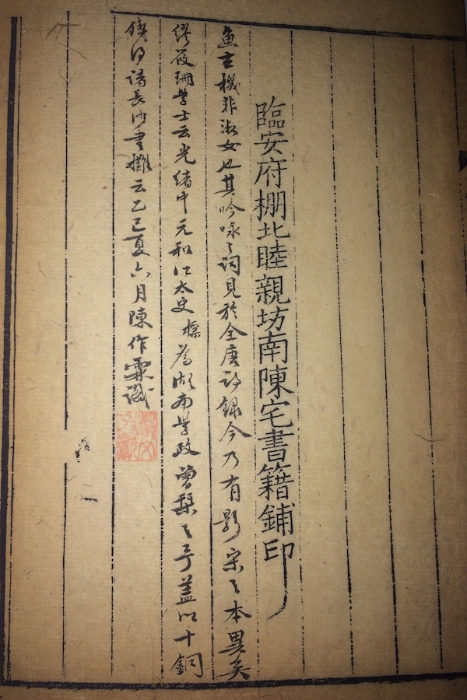 臨安府棚北睦親坊南陳宅書籍鋪印
魚玄機非淑女也其吟咏之詞見於全唐詩錄今乃有影宋之本異矣
繆筱珊學士云光緒中元和江太史標為湖南學政曾槧之于蓋以十銅
錢得諸長沙書攤云乙巳夏六月陳作霖識